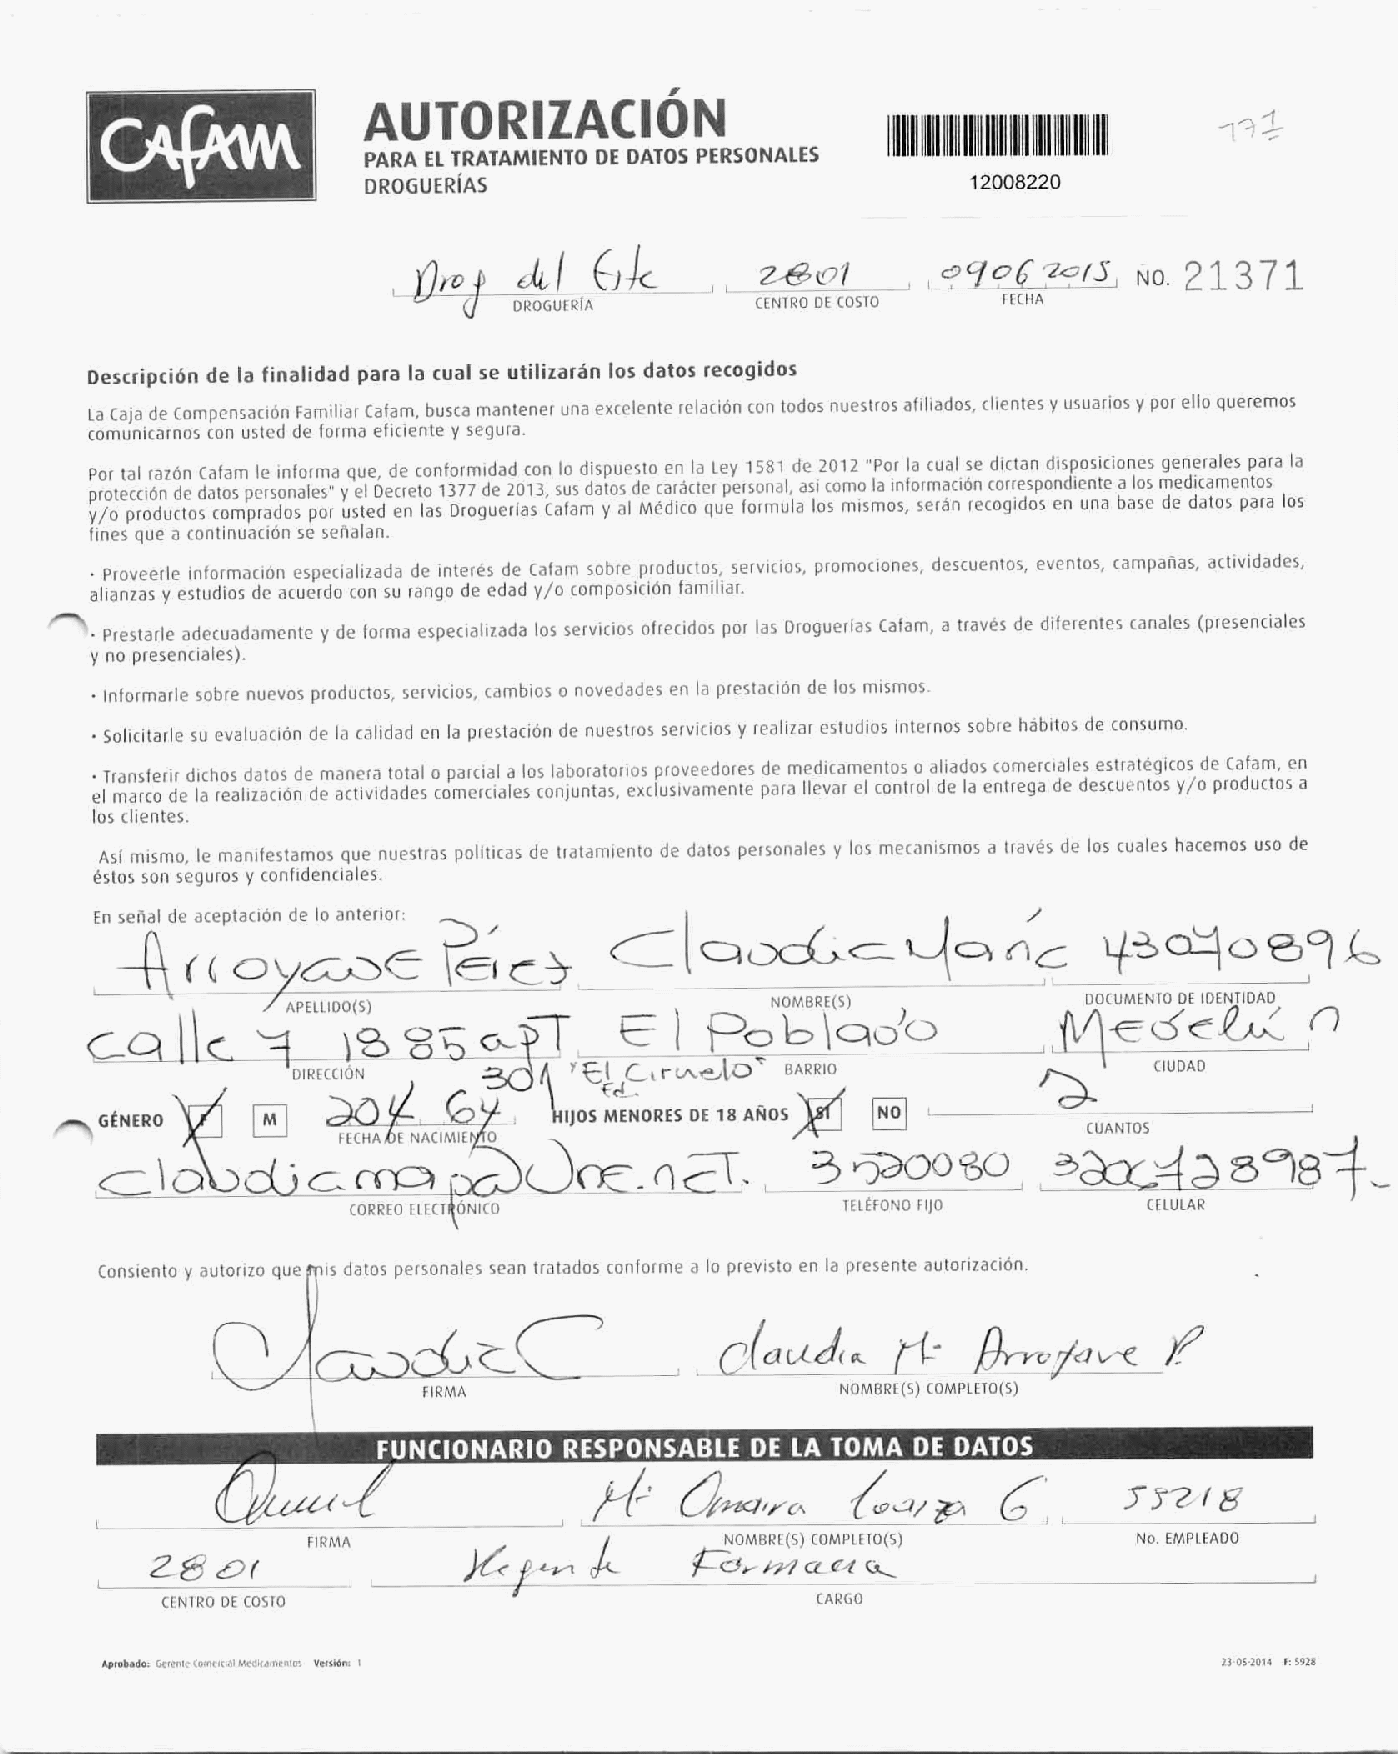 CAFAM
AUTORIZACIÓN
PARA EL TRATAMIENTO DE DATOS PERSONALES
DROGUERÍAS
12008220
Drog del Este 2801 09062015 NO. 21371
DROGUERÍA CENTRO DE COSTO FECHA
Descripción de la finalidad para la cual se utilizarán los datos recogidos
La Caja de Compensación Familiar Cafam, busca mantener una excelente relación con todos nuestros afiliados, clientes y usuarios y por ello queremos
comunicarnos con usted de forma eficiente y segura.
Por tal razón Cafam le informa que, de conformidad con lo dispuesto en la Ley 1581 de 2012 "Por la cual se dictan disposiciones generales para la
protección de datos personales" y el Decreto 1377 de 2013, sus datos de carácter personal, así como la información correspondiente a los medicamentos
y/o productos comprados por usted en las Droguerías Cafam y al Médico que formula los mismos, serán recogidos en una base de datos para los
fines que a continuación se señalan.
· Proveerle información especializada de interés de Cafam sobre productos, servicios, promociones, descuentos, eventos, campañas, actividades,
alianzas y estudios de acuerdo con su rango de edad y/o composición familiar.
· Prestarle adecuadamente y de forma especializada los servicios ofrecidos por las Droguerías Cafam, a través de diferentes canales (presenciales
y no presenciales).
· Informarle sobre nuevos productos, servicios, cambios o novedades en la prestación de los mismos.
· Solicitarle su evaluación de la calidad en la prestación de nuestros servicios y realizar estudios internos sobre hábitos de consumo.
· Transferir dichos datos de manera total o parcial a los laboratorios proveedores de medicamentos o aliados comerciales estratégicos de Cafam, en
el marco de la realización de actividades comerciales conjuntas, exclusivamente para llevar el control de la entrega de descuentos y/o productos a
los clientes.
Así mismo, le manifestamos que nuestras políticas de tratamiento de datos personales y los mecanismos a través de los cuales hacemos uso de
éstos son seguros y confidenciales.
En señal de aceptación de lo anterior:
Arroyave Pérez Claudia María 43040896
APELLIDO(S) NOMBRE(S) DOCUMENTO DE IDENTIDAD
calle 7 1885 apT El Poblado Medellín
DIRECCIÓN 301 "El Ciruelo" BARRIO CIUDAD
Ed.
GÉNERO F M 204 64 HIJOS MENORES DE 18 AÑOS SI NO 2
FECHA DE NACIMIENTO CUANTOS
claudiamapa@une.neT. 3520080 3206728987
CORREO ELECTRÓNICO TELÉFONO FIJO CELULAR
Consiento y autorizo que mis datos personales sean tratados conforme a lo previsto en la presente autorización.
Claudia Claudia Mª Arroyave P.
FIRMA NOMBRE(S) COMPLETO(S)
FUNCIONARIO RESPONSABLE DE LA TOMA DE DATOS
Mª Omaira Loaiza G 55218
FIRMA NOMBRE(S) COMPLETO(S) No. EMPLEADO
2801 Regente Farmacia
CENTRO DE COSTO CARGO
Aprobado: Gerente Comercial Medicamentos Versión: 1 23-05-2014 F: 5928